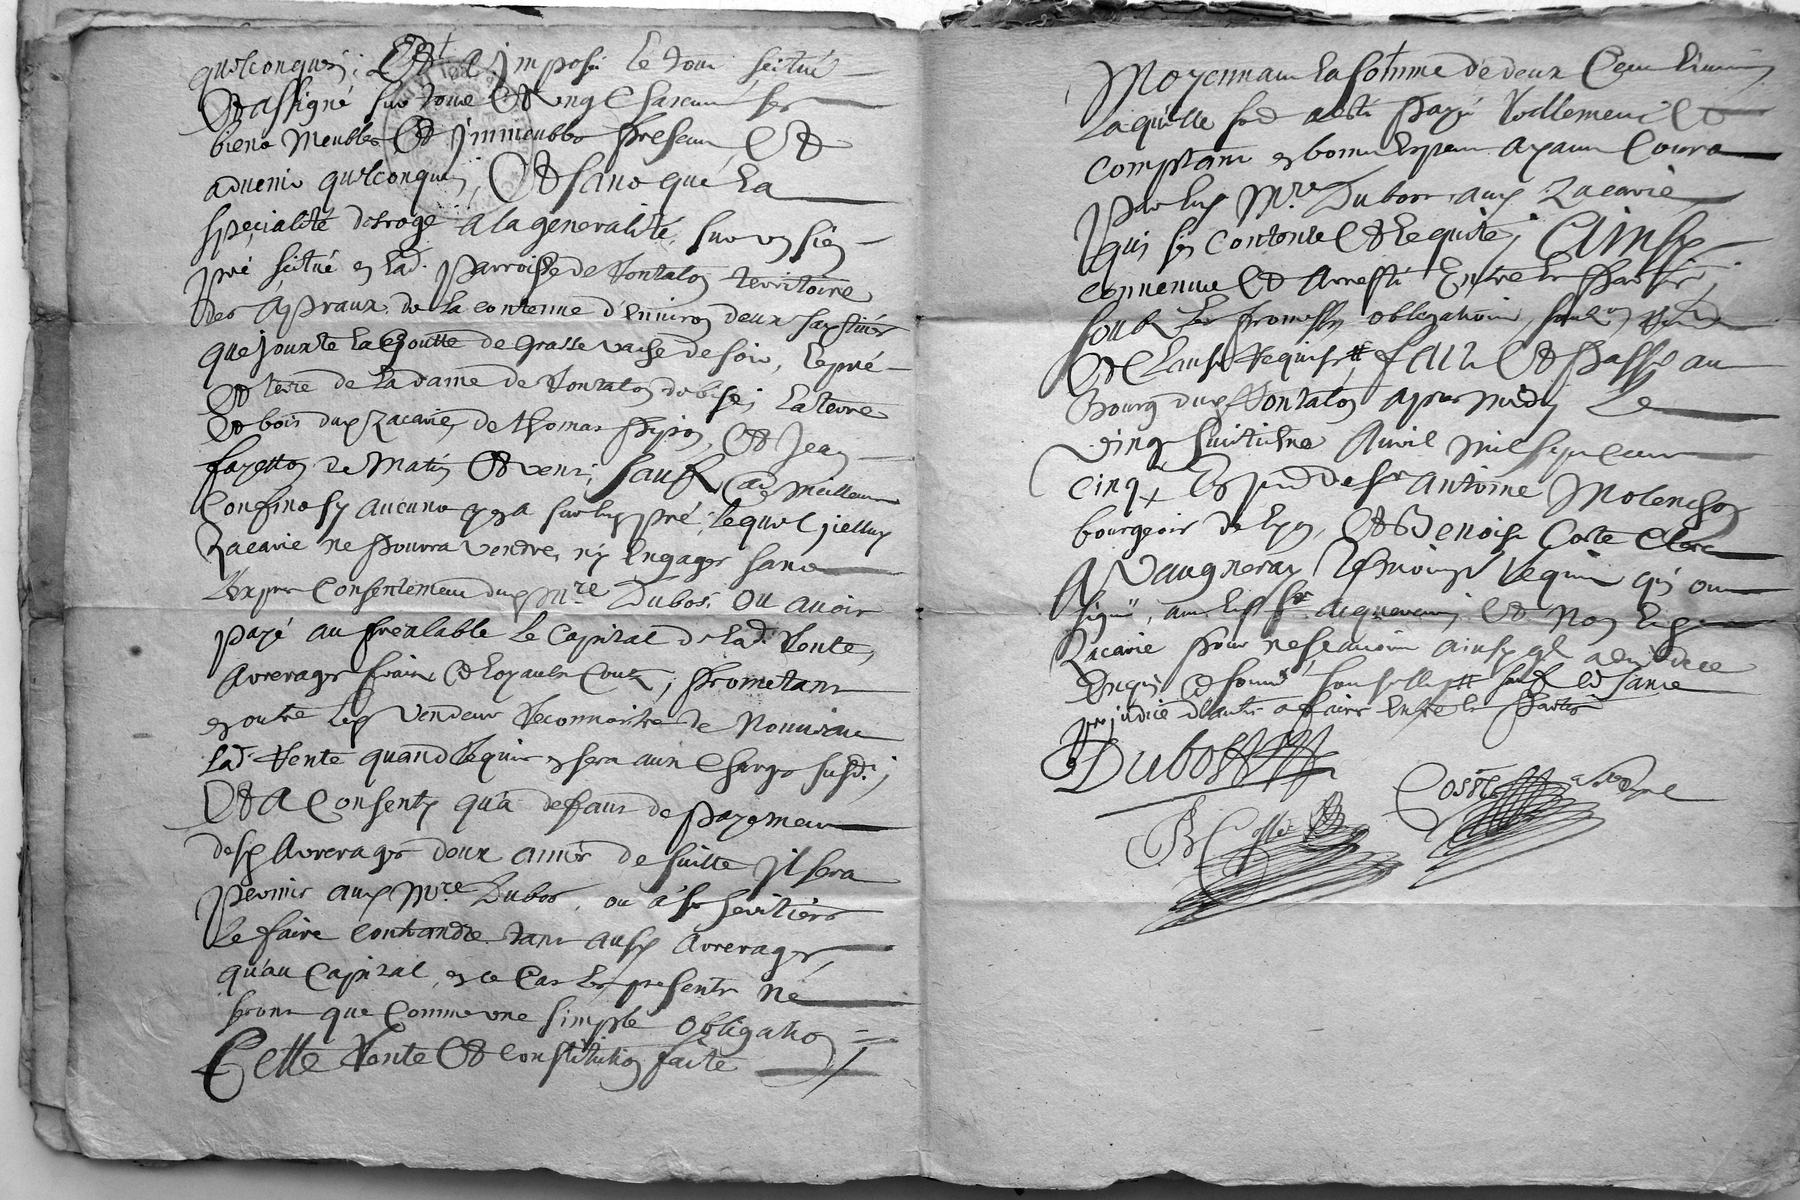 quelconques; Et a imposé le tout scitué
Et assigné sur tous Et ung chascun ses
biens Meubles Et immeubles presens Et
aduenir quelconques, Et sans que La
specialité desroge a la generalité, sur un sien
pré scitué en lad. parroisse de Pontalon territoire
des de la contenue d'enuiron deux
que jouxte la Goutte de grasse vache de soir, le pré
Et terre de la dame de de bise; la terre
Et bois dud Zacarie, de thomas, Et Jean
fayetton de Matin Et vent; sauf ses meilleurs
Confins sy aucuns y en a sur led pré; lequel jcelluy
Zacarie ne pourra vendre, ny Engager sans
L'expres Consentement dud Mre Dubost, ou auoir
payé au prealable le Capital de lad. Rente,
Arrerages frais, Et loyaulx Coutz; promettant
en outre led vendeur Reconnoistre de Nouueau
lad. Rente quand Requis en sera aux Charges susd.;
Et a Consenty qu'a deffaut de payement
desd Arrerages deux années de suitte il sera
permis aud Mre Dubost, ou a ses heritiers
le faire Contraindre tant ausd Arrerages,
qu'au Capital, en ce Cas les presentes Ne
seront que Comme une simple obligation
Cette Rente Et Constitution faite
Moyennant la somme de deux Cent liures
Laquelle somme a esté payé Reellement Et
comptant en bonnes Especes ayant Cours
Par led Mre Dubost aud Zacarie,
qui s'en Contente Et le quitte; Ainsy
conuenu Et Arresté Entre les Parties,
soubz les promesses, obligations,
Et Clauses Requises Fait Et Passé au
Bourg dud Pontalon apres midy Le
vingt huitieme Auril mil sept cent
cinq, En presence de Sr antoine Molenchon
bourgeois de Lyon, Et Benoist Coste Clerc
A Vaugneray Tesmoings Requis qui ont
signé, auec led Sr acquereur; Et Non led
Zacarie pour ne scauoir ainsy qu'il a dit de ce
Enquis Et sommé sauf Et sans
prejudice d'autres affaires Entre les Parties
Dubost
B Coste